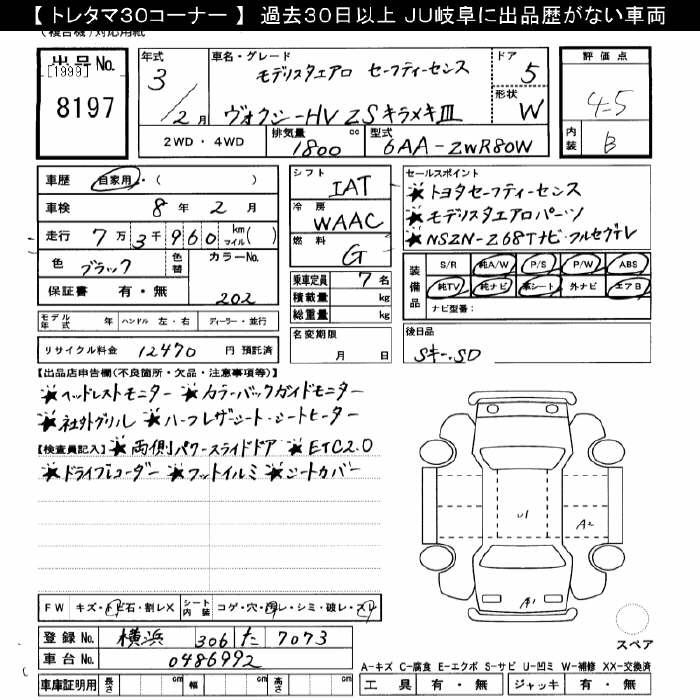 【 トレタマ30コーナー 】 過去30日以上 JU岐阜に出品歴がない車両
(複合機)対応用紙
出品No.
[1999]
8197
年式 3 / 2月
車名・グレード
モデリスタエアロ セーフティーセンス
ヴォクシーHV ZSキラメキⅢ
ドア 5
形状 W
評価点
4.5
内装 B
2WD・4WD 排気量 1800 cc 型式 6AA-ZWR80W
車歴 自家用・( )
車検 8年 2月
走行 7万3千960 km マイル( )
色 ブラック 色替 カラーNo.
保証書 有・無 202
モデル年式 年 ハンドル 左・右 ディーラー・並行
リサイクル料金 12470 円 預託済
シフト IAT
冷房 WAAC
燃料 G
乗車定員 7名
積載量 kg
総重量 kg
名変期限
月 日
セールスポイント
★トヨタセーフティーセンス
★モデリスタエアロパーツ
★NSZN-Z68Tナビ・フルセグTV
装備品 S/R 純A/W P/S P/W ABS
純TV 純ナビ 革シート 外ナビ エアB
ナビ型番:
後日品
Sキー.SD
【出品店申告欄(不良箇所・欠品・注意事項等)】
★ヘッドレストモニター ★カラーバックガイドモニター
★社外グリル ★ハーフレザーシート・シートヒーター
【検査員記入】★両側パワースライドドア ★ETC2.0
★ドライブレコーダー ★フットイルミ ★シートカバー
U1
A2
A1
FW キズ・トビ石・割レX シート内装 コゲ・穴・汚レ・シミ・破レ・スレ
登録No. 横浜 306 た 7073
車台No. 0486992
車庫証明用 長さ cm 幅 cm 高さ cm
スペア
A-キズ C-腐食 E-エクボ S-サビ U-凹ミ W-補修 XX-交換済
工具 有・無 ジャッキ 有・無